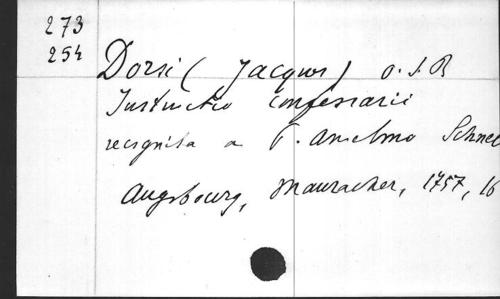 273
254
Dorsi (Jacques) O.S.B
Instructio confessarii
recognita a P. Anselmo Schnel
Augsbourg, Mauracher, 1757, 16